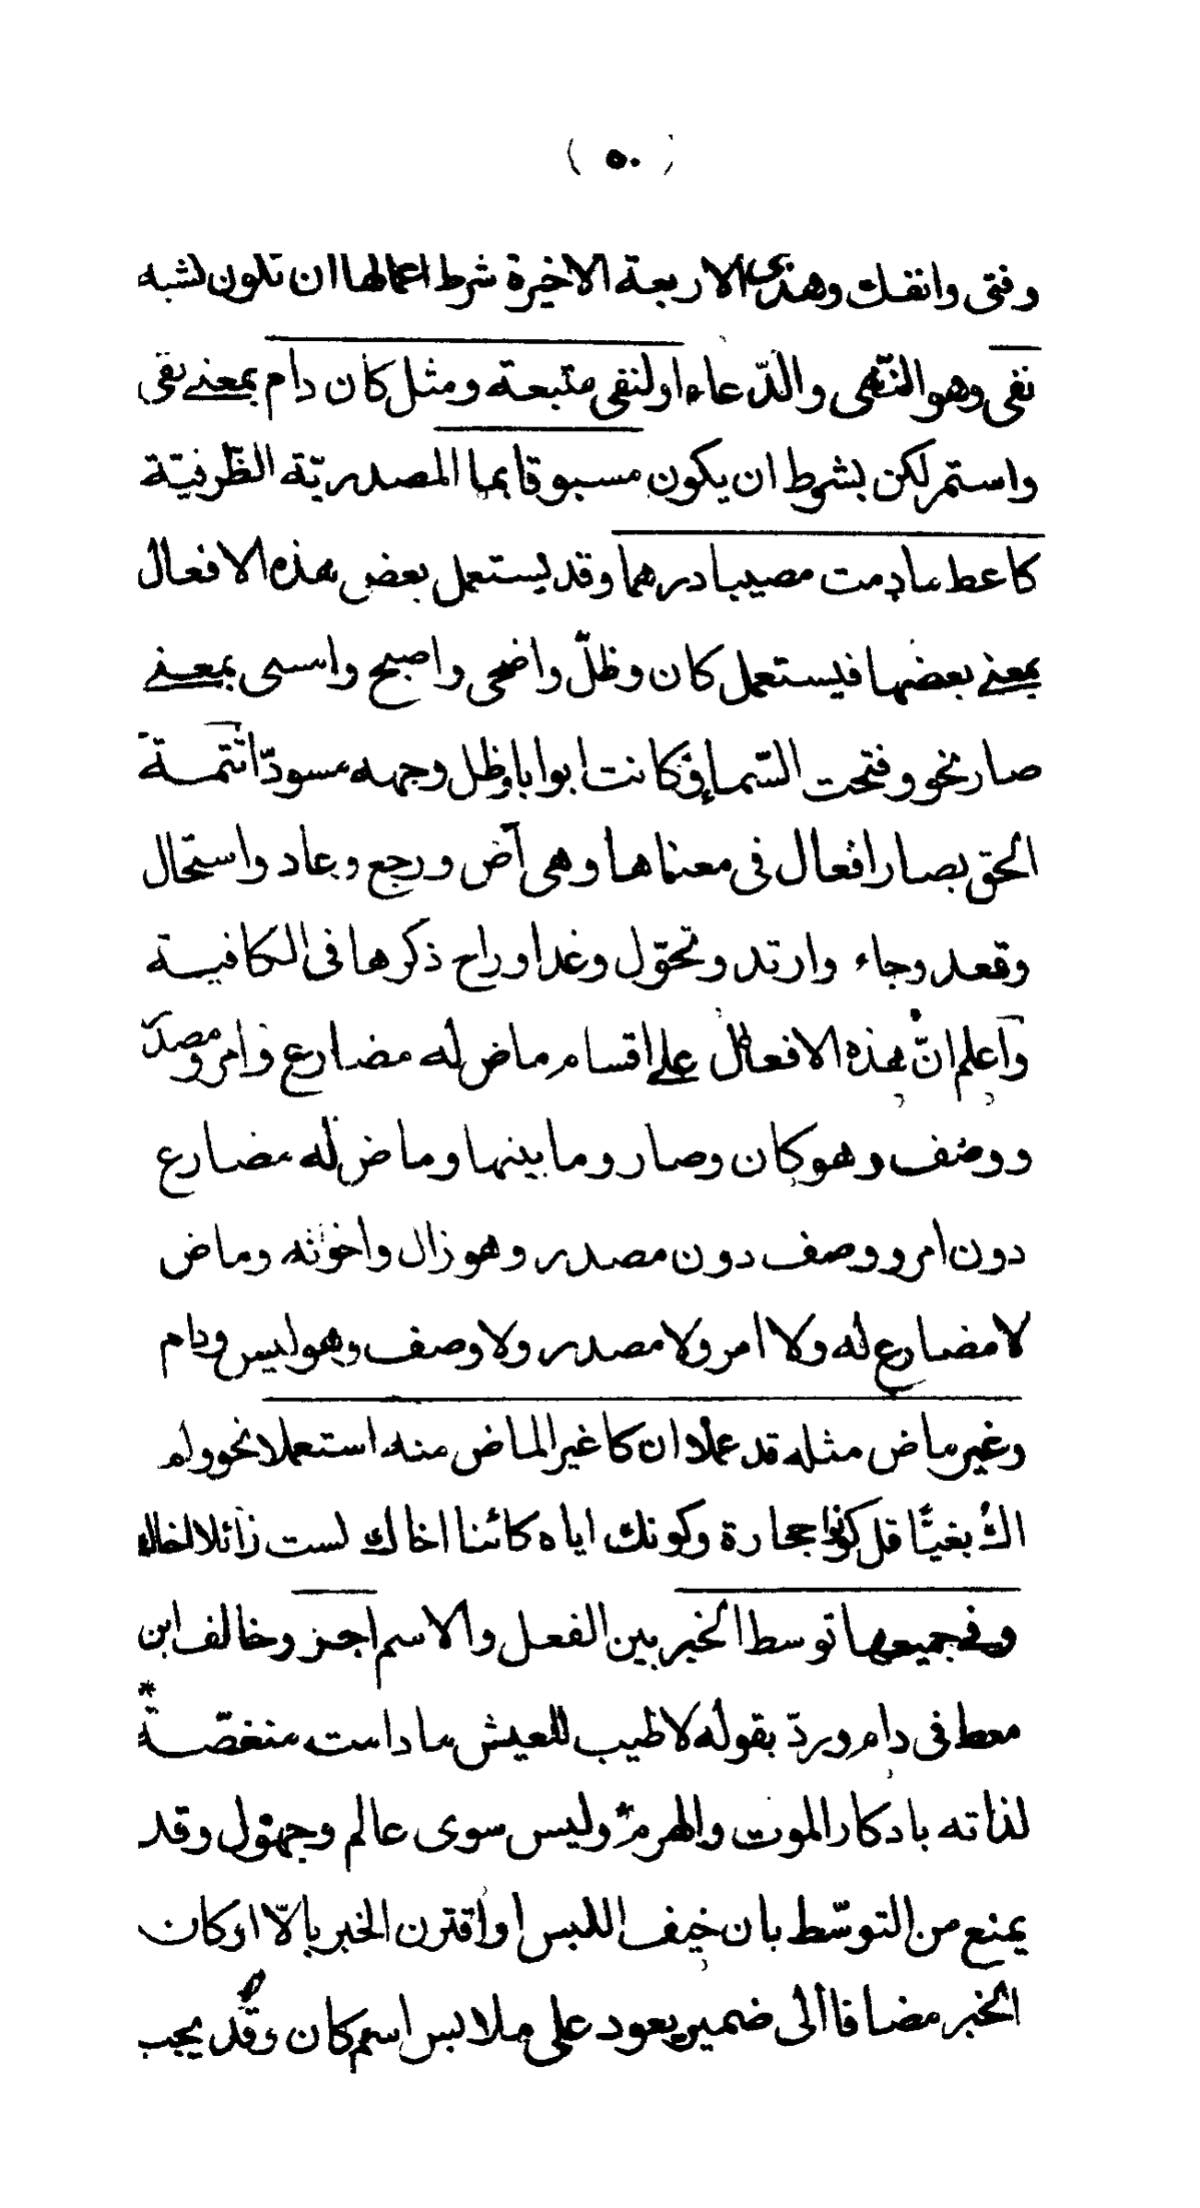 ( ٥٠ )
وفتئ وانفك وهذى الاربعة الاخيرة شرط اعمالها ان تكون لشبه
نفى وهو النّهى والدّعاء او لنفى متبعة ومثل كان دام بمعنى بقى
واستمر لكن بشرط ان يكون مسبوقا بما المصدريّة الظّرفيّة
كاعط مادمت مصيبا درهما وقد يستعمل بعض هذه الافعال
بمعنى بعضها فيستعمل كان وظلّ واضحى واصبح وامسى بمعنى
صار نحو وفتحت السّماء فكانت ابوابا وظل وجهه مسودّا تتمـة
الحق بصار افعال فى معناها وهى آض ورجع وعاد واستحال
وقعد وجاء وارتد وتحوّل وغدا وراح ذكرها فى الكافية
واعلم انّ هذه الافعال على اقسام ماض له مضارع وامر ومصدر
ووصف وهو كان وصار وما بينهما وماض له مضارع
دون امر ووصف دون مصدر وهو زال واخوته وماض
لا مضارع له ولا امر ولا مصدر ولا وصف وهو ليس ودام
وغير ماض مثله قد عملا ان كا غير الماض منه استعملا نحو ولم
اك بغيّا قل كونوا حجارة وكونك اياه كائنا اخاك لست زائلا
وفى جميعها توسط الخبر بين الفعل والاسم اجز وخالف ابن
معط فى دام وردّ بقوله لا طيب للعيش ما دامت منغصّـة
لذاته بادكار الموت والهرم وليس سوى عالم وجهول وقد
يمنع من التوسّط بان خيف اللبس او اقترن الخبر بالّا او كان
الخبر مضافا الى ضمير يعود على ملابس اسم كان وقد يجب